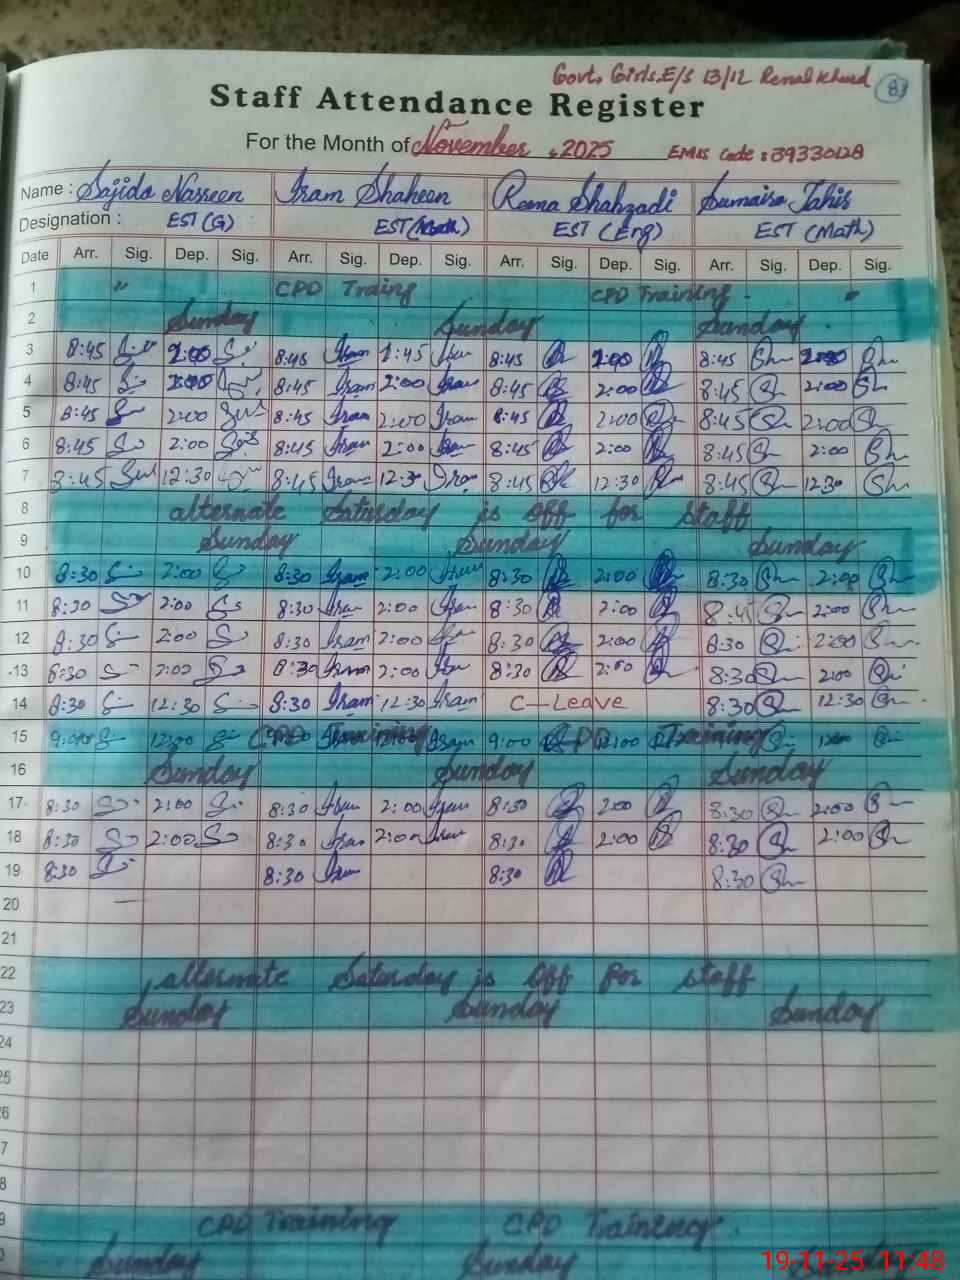 Govt. Girls. E/S 13/1L Renal Khurd 83
Staff Attendance Register
For the Month of November, 2025 EMIS Code : 39330128
Name : Sajida Nasreen Iram Shaheen Rema Shahzadi Sumaira Tahir
Designation : EST (G) EST (Math) EST (Eng) EST (Math)
Date Arr. Sig. Dep. Sig. Arr. Sig. Dep. Sig. Arr. Sig. Dep. Sig. Arr. Sig. Dep. Sig.
1 " CPD Traing CPD Training "
2 Sunday Sunday Sunday
3 8:45 2:00 8:45 Iram 1:45 Iram 8:45 2:00 8:45 Sh 2:00 Sh
4 8:45 2:00 8:45 Iram 2:00 Iram 8:45 2:00 8:45 Sh 2:00 Sh
5 8:45 2:00 8:45 Iram 2:00 Iram 8:45 2:00 8:45 Sh 2:00 Sh
6 8:45 2:00 8:45 Iram 2:00 Iram 8:45 2:00 8:45 Sh 2:00 Sh
7 8:45 12:30 8:45 Iram 12:30 Iram 8:45 12:30 8:45 Sh 12:30 Sh
8 alternate Saturday is off for staff
9 Sunday Sunday Sunday
10 8:30 2:00 8:30 Iram 2:00 Iram 8:30 2:00 8:30 Sh 2:00 Sh
11 8:30 2:00 8:30 Iram 2:00 Iram 8:30 2:00 8:45 Sh 2:00 Sh
12 8:30 2:00 8:30 Iram 2:00 Iram 8:30 2:00 8:30 Sh 2:00 Sh
13 8:30 2:00 8:30 Iram 2:00 Iram 8:30 2:00 8:30 Sh 2:00
14 8:30 12:30 8:30 Iram 12:30 Iram C-Leave 8:30 Sh 12:30 Sh
15 9:00 12:00 CPD Training Iram 9:00 CPD 12:00 Training
16 Sunday Sunday Sunday
17 8:30 2:00 8:30 Iram 2:00 Iram 8:30 2:00 8:30 Sh 2:00
18 8:30 2:00 8:30 Iram 2:00 Iram 8:30 2:00 8:30 Sh 2:00 Sh
19 8:30 8:30 Iram 8:30 8:30 Sh
20
21
22 alternate Saturday is off for staff
23 Sunday Sunday Sunday
24
25
6
7
8
9 CPD Training CPD Training
0 Sunday Sunday
19-11-25 11:48